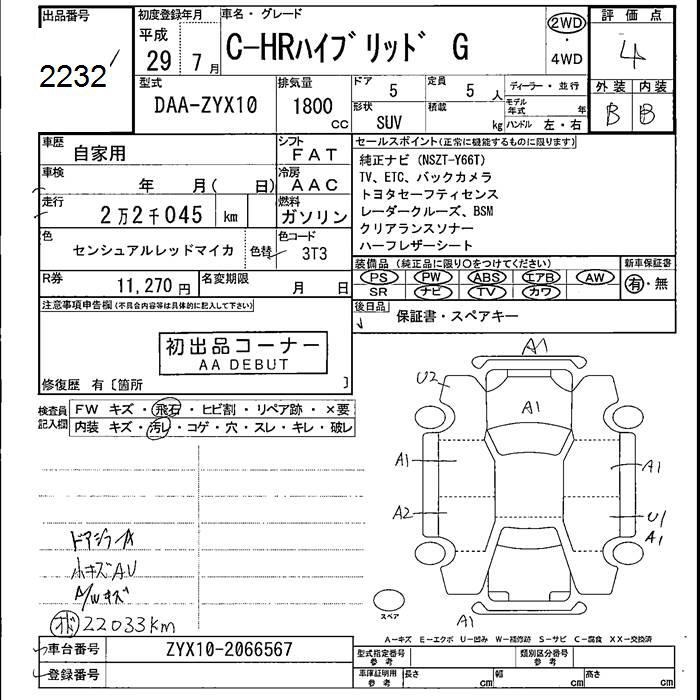 出品番号
2232
初度登録年月
平成
29年7月
車名・グレード
C-HRハイブリッド G
2WD
・
4WD
評価点
4
型式
DAA-ZYX10
排気量
1800
cc
ドア
5
定員
5人
形状
SUV
積載
kg
ディーラー・並行
モデル年式 年
ハンドル 左・右
外装 内装
B B
車歴
自家用
シフト
FAT
車検
年 月( 日)
冷房
AAC
走行
2万2千045 km
燃料
ガソリン
色
センシュアルレッドマイカ
色替
色コード
3T3
R券
11,270円
名変期限
月 日
セールスポイント(正常に機能するものに限ります)
純正ナビ(NSZT-Y66T)
TV、ETC、バックカメラ
トヨタセーフティセンス
レーダークルーズ、BSM
クリアランスソナー
ハーフレザーシート
装備品(純正品に限り○をつけてください)
PS PW ABS エアB AW
SR ナビ TV カワ
新車保証書
有・無
後日品
保証書・スペアキー
注意事項申告欄(不具合内容等は具体的に記入して下さい)
初出品コーナー
AA DEBUT
修復歴 有〔箇所 〕
検査員記入欄
FW キズ・飛石・ヒビ割・リペア跡・×要
内装 キズ・汚レ・コゲ・穴・スレ・キレ・破レ
A1
U2
A1
A1
A1
A2
U1
A1
A1
スペア
小キズAU
A/Wキズ
22033km
A-キズ E-エクボ U-凹み W-補修跡 S-サビ C-腐食 XX-交換済
車台番号
ZYX10-2066567
登録番号
型式指定番号
参考
類別区分番号
参考
車庫証明用
参考
長さ cm
幅 cm
高さ cm